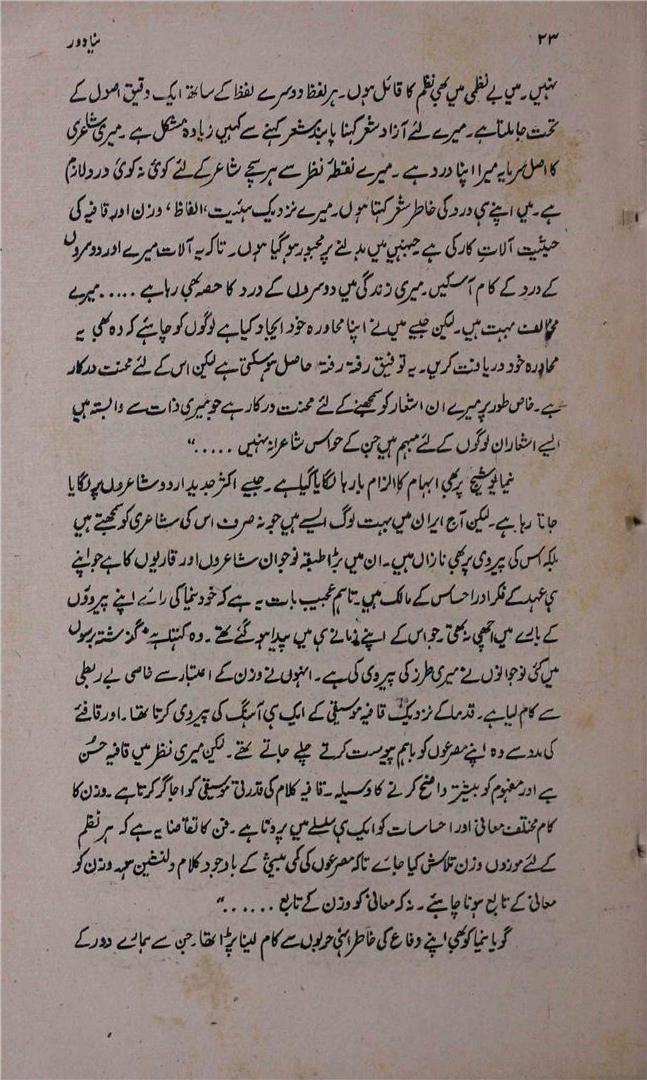 ۲۳ نیا دور
نہیں۔ میں بے نظمی میں بھی نظم کا قائل ہوں۔ ہر لفظ دوسرے لفظ کے ساتھ ایک دقیق اصول کے
تحت جا ملتا ہے۔ میرے لئے آزاد شعر کہنا پابند شعر کہنے سے کہیں زیادہ مشکل ہے۔ میری شاعری
کا اصل سرمایہ میرا اپنا درد ہے۔ میرے نقطۂ نظر سے ہر سچے شاعر کے لئے کوئی نہ کوئی درد لازم
ہے۔ میں اپنے ہی درد کی خاطر شعر کہتا ہوں۔ میرے نزدیک ہئیت، الفاظ، وزن اور قافیہ کی
حیثیت آلاتِ کار کی ہے جنہیں میں بدلنے پر مجبور ہو گیا ہوں۔ تاکہ یہ آلات میرے اور دوسروں
کے درد کے کام آ سکیں۔ میری زندگی میں دوسروں کے درد کا حصہ بھی رہا ہے ..... میرے
مخالف بہت ہیں۔ لیکن جیسے میں نے اپنا محاورہ خود ایجاد کیا ہے لوگوں کو چاہئے کہ وہ بھی یہ
محاورہ خود دریافت کریں۔ یہ توفیق رفتہ رفتہ حاصل ہو سکتی ہے لیکن اس کے لئے محنت درکار
ہے۔ خاص طور پر میرے ان اشعار کو سمجھنے کے لئے محنت درکار ہے جو میری ذات سے وابستہ ہیں
ایسے اشعار ان لوگوں کے لئے مبہم ہیں جن کے حواس شاعرانہ نہیں ....."
نیما یوشیج پر بھی ابہام کا الزام بارہا لگایا گیا ہے۔ جیسے اکثر جدید اردو شاعروں پر لگایا
جاتا رہا ہے۔ لیکن آج ایران میں بہت لوگ ایسے ہیں جو نہ صرف اس کی شاعری کو سمجھتے ہیں
بلکہ اس کی پیروی پر بھی نازاں ہیں۔ ان میں بڑا طبقہ نوجوان شاعروں اور قاریوں کا ہے جو اپنے
ہی عہد کے فکر اور احساس کے مالک ہیں۔ تاہم عجیب بات یہ ہے کہ خود نیما کی رائے اپنے پیروؤں
کے بارے میں اچھی نہ تھی۔ جو اس کے اپنے زمانے ہی میں پیدا ہو گئے تھے۔ وہ کہتا ہے "گذشتہ برسوں
میں کئی نوجوانوں نے میری طرز کی پیروی کی ہے۔ انہوں نے وزن کے اعتبار سے خاصی بے ربطی
سے کام لیا ہے۔ قدما کے نزدیک قافیہ موسیقی کے ایک ہی آہنگ کی پیروی کرتا تھا۔ اور قافئے
کی مدد سے وہ اپنے مصرعوں کو باہم پیوست کرتے چلے جاتے تھے۔ لیکن میری نظر میں قافیہ حُسن
ہے اور مفہوم کو بیشتر واضح کرنے کا وسیلہ۔ قافیہ کلام کی قدرتی موسیقی کو اجاگر کرتا ہے۔ وزن کا
کام مختلف معانی اور احساسات کو ایک ہی سلسلے میں پرونا ہے۔ فن کا تقاضا یہ ہے کہ ہر نظم
کے لئے موزوں وزن تلاش کیا جائے تاکہ مصرعوں کی کمی بیشی کے باوجود کلام دلنشین ہو۔ وزن کو
معانی کے تابع ہونا چاہئے۔ نہ کہ معانی کو وزن کے تابع ......"
گویا نیما کو بھی اپنے دفاع کی خاطر انہی حربوں سے کام لینا پڑا تھا۔ جن سے ہمارے دور کے